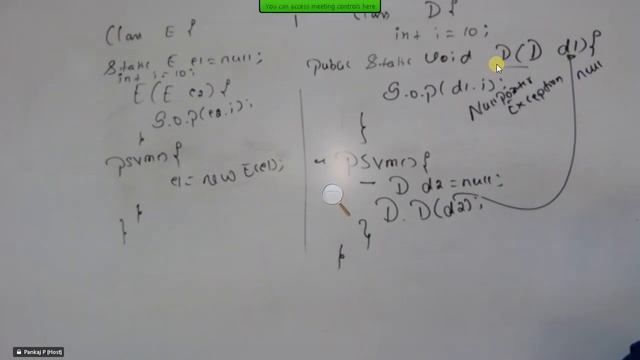 You can access meeting controls here.
Class E {
Static E e1 = null;
int i = 10;
E(E e2) {
S.o.p(e2.i);
}
psvm() {
e1 = new E(e1);
}
}
Class D {
int i = 10;
public Static void D(D d1) {
S.o.p(d1.i);
NullPointer
Exception
null
}
psvm() {
D d2 = null;
D.D(d2);
}
}
Pankaj P [Host]